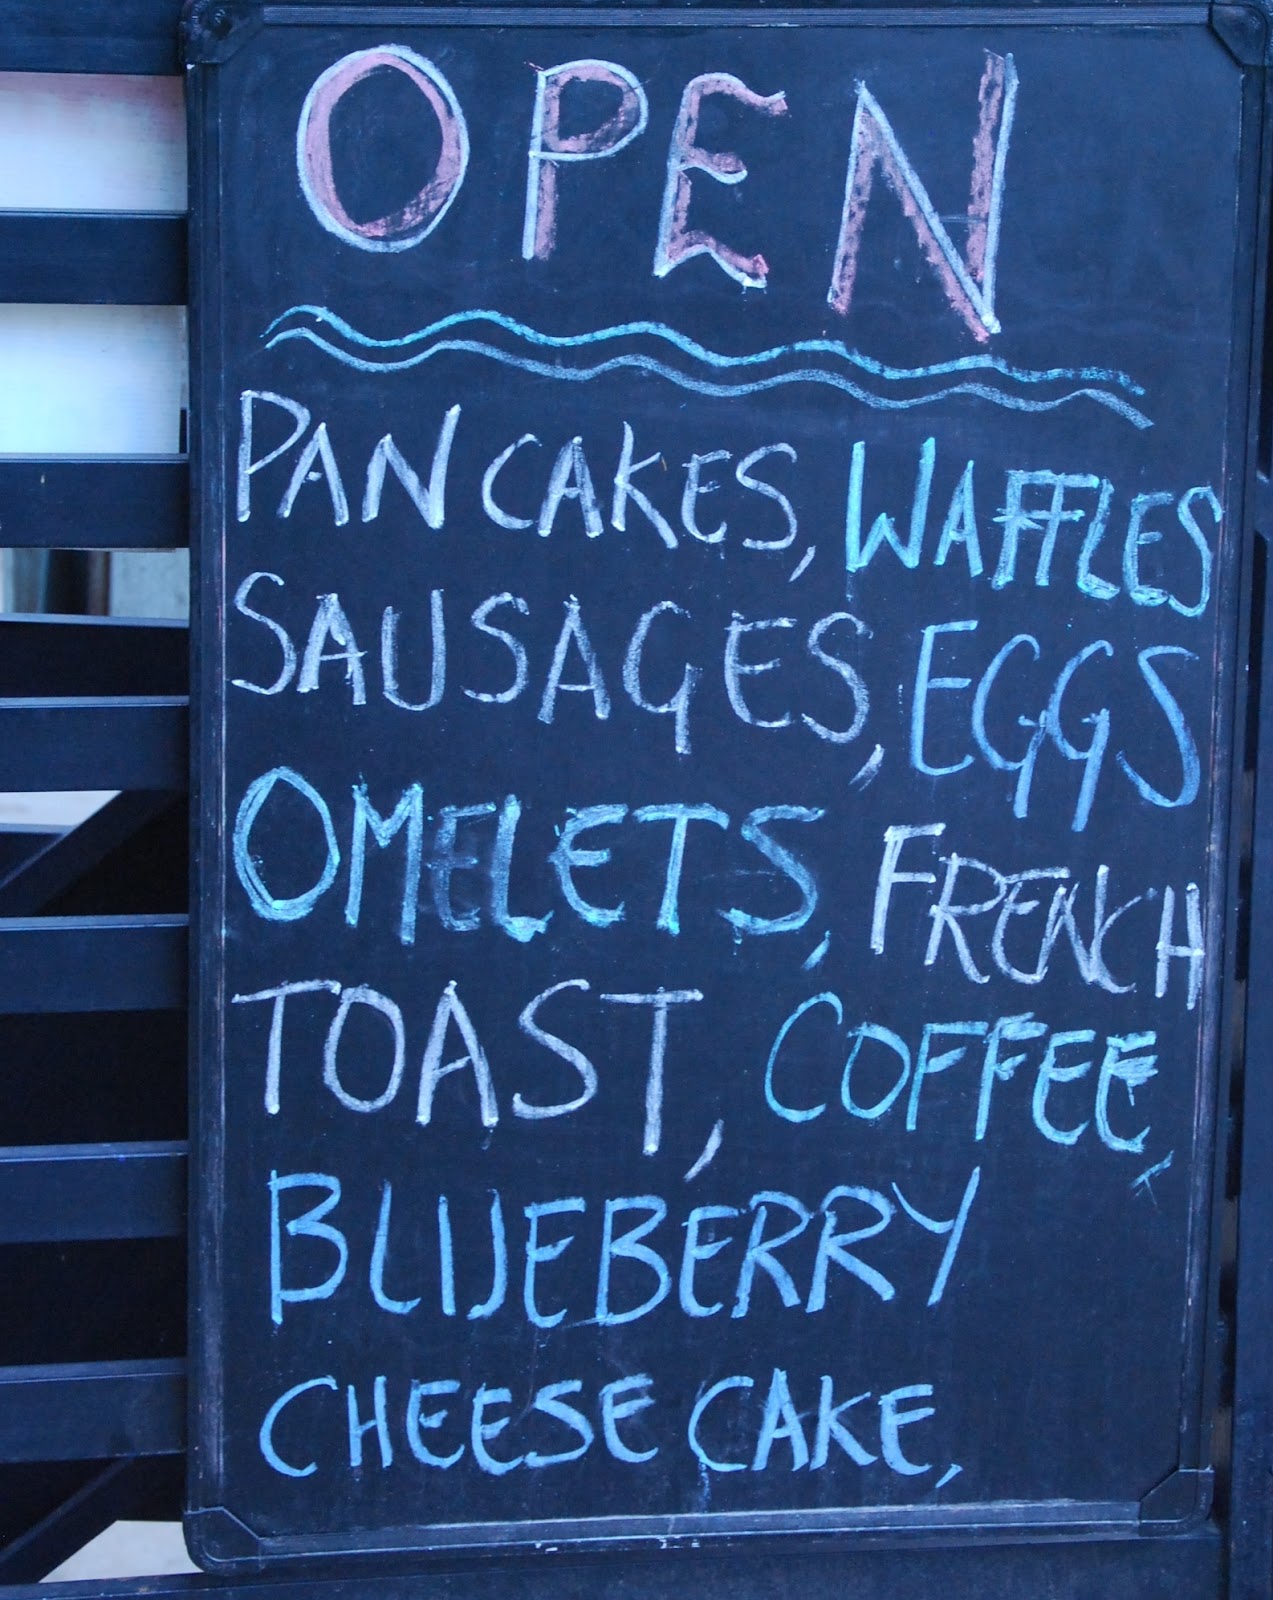 OPEN
PANCAKES, WAFFLES
SAUSAGES, EGGS
OMELETS, FRENCH
TOAST, COFFEE,
BLUEBERRY
CHEESE CAKE,